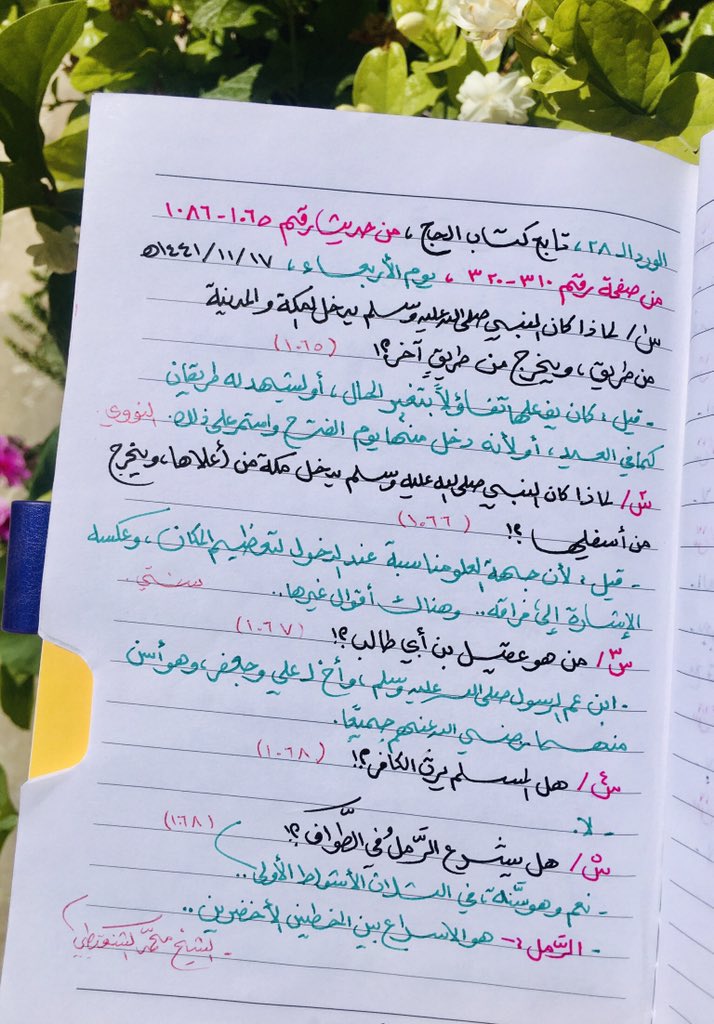 الورد الـ ٢٨، تابع كتاب الحج، من حديث رقم ١٠٦٥-١٠٨٦
من صفحة رقم ٣١٠-٣٢٠، يوم الأربعاء، ١٤٤١/١١/١٧هـ
س١/ لماذا كان النبي صلى الله عليه وسلم يدخل لمكة والمدينة
من طريق، ويخرج من طريقٍ آخر؟! (١٠٦٥)
- قيل: كان يفعلها تفاؤلاً بتغير الحال، أو ليشهد له طريقان
كما في العيد، أو لأنه دخل منها يوم الفتح واستمر على ذلك. النووي
س/ لماذا كان النبي صلى الله عليه وسلم يدخل مكة من أعلاها، ويخرج
من أسفلها؟! (١٠٦٦)
- قيل: لأن جهة العلو مناسبة عند الدخول لتعظيم المكان، وعكسه
الإشارة إلى فراقه.. وهناك أقوال غيرها.. سندي.
س٣/ من هو عقيل بن أبي طالب؟! (١٠٦٧)
- ابن عم الرسول صلى الله عليه وسلم، وأخ لـ علي وجعفر، وهو أسن
منهما رضي الله عنهم جميعًا.
س٤/ هل المسلم يرث الكافر؟! (١٠٦٨)
- لا.
س٥/ هل يشرع الرَّمل في الطَّواف؟! (١٦٨)
- نعم وهو سنّة، في الثلاث الأشواط الأولى..
- الرَّمل:- هو الاسراع بين الخطين الأخضرين..
- الشيخ محمد الشنقيطي